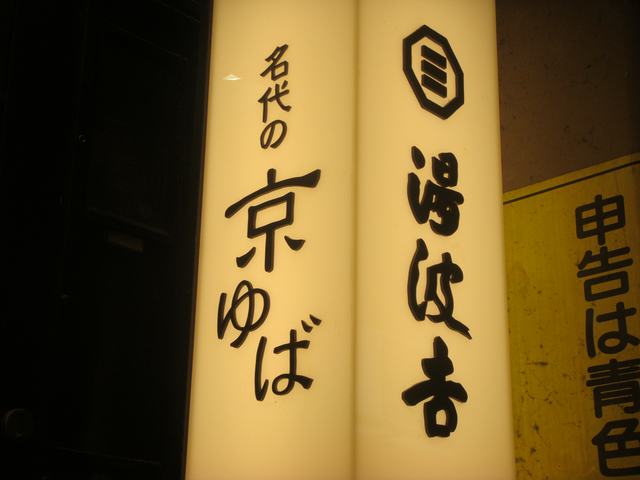 湯波吉
名代の
京ゆば
申告は青色